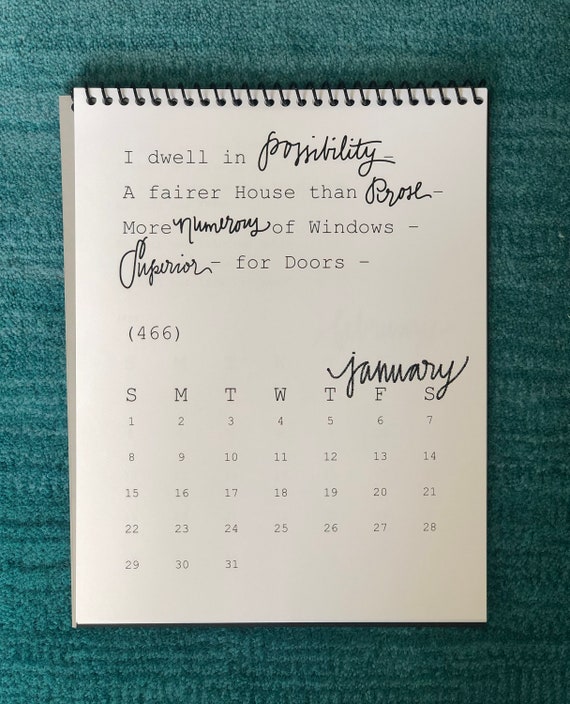 I dwell in Possibility–
A fairer House than Prose–
More numerous of Windows –
Superior– for Doors –
(466)
january
S M T W T F S
1 2 3 4 5 6 7
8 9 10 11 12 13 14
15 16 17 18 19 20 21
22 23 24 25 26 27 28
29 30 31